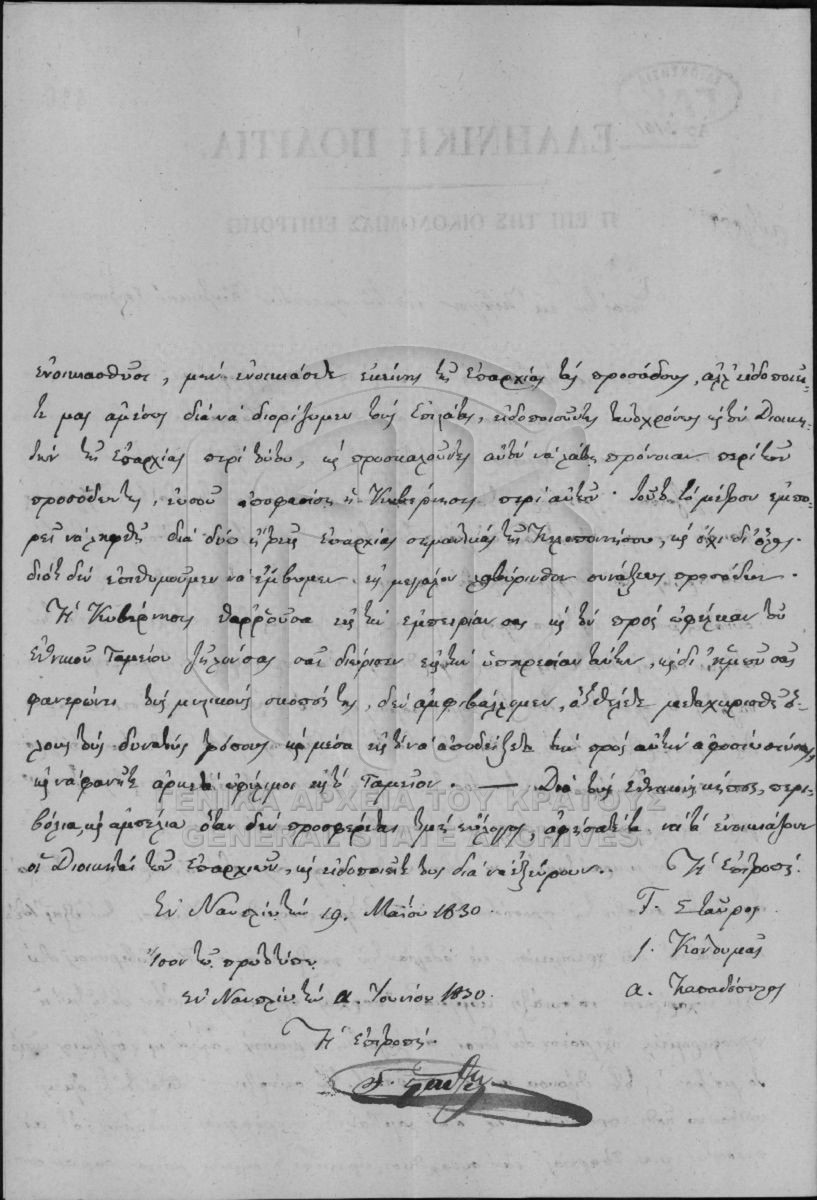 ἐνοικιασθῶσι, μὴν ἐνοικιάσετε ἐκείνης τῆς ἐπαρχίας τὰς προσόδους, ἀλλ' εἰδοποιεῖ-
τέ μας ἀμέσως διὰ νὰ διορίζωμεν τοὺς ἐπιστάτας, εἰδοποιοῦντες ταυτοχρόνως καὶ τὸν Διοικη-
τὴν τῆς ἐπαρχίας περὶ τούτου, καὶ προσκαλοῦντες αὐτὸν νὰ λάβῃ πρόνοιαν περὶ τῶν
προσόδων της, ἑωσοῦ ἀποφασίσῃ ἡ Κυβέρνησις περὶ αὐτῶν. Τοῦτο τὸ μέτρον ἐμπο-
ρεῖ νὰ ληφθῇ διὰ δύο ἢ τρεῖς ἐπαρχίας σημαντικὰς τῆς Πελοποννήσου, καὶ ὄχι δι' ὅλας.
διότι δὲν ἐπιθυμοῦμεν νὰ ἔμβωμεν εἰς μεγάλον λαβύρινθον συνάξεως προσόδων.
Ἡ Κυβέρνησις θαρροῦσα εἰς τὴν ἐμπειρίαν σας καὶ τὸν πρὸς ὠφέλειαν τοῦ
Ἐθνικοῦ Ταμείου ζῆλόν σας σᾶς διώρισεν εἰς τὴν ὑπηρεσίαν ταύτην, καὶ δι' ἡμῶν σᾶς
φανερώνει τοὺς μυστικοὺς σκοπούς της, δὲν ἀμφιβάλλομεν, ὅτι θέλετε μεταχειρισθῆ ὅ-
λους τοὺς δυνατοὺς τρόπους καὶ μέσα εἰς τὸ νὰ ἀποδείξετε τὴν πρὸς αὐτὴν ἀφοσίωσίν σας,
καὶ νὰ φανῆτε ἀρκετὰ ὠφέλιμοι εἰς τὸ Ταμεῖον. — Διὰ τοὺς ἐθνικοὺς κήπους, περι-
βόλια, καὶ ἀμπέλια ὅταν δὲν προσφέρεται τιμὴ εὔλογος, ἀφήσατέ τα νὰ τὰ ἐνοικιάζουν
οἱ Διοικηταὶ τῶν ἐπαρχιῶν, καὶ εἰδοποιεῖτέ τους διὰ νὰ ἠξεύρουν. Ἡ Ἐπιτροπὴ
Ἐν Ναυπλίῳ τὴν 19. Μαΐου 1830. Γ. Σταῦρος
Ἴσον τῷ πρωτοτύπῳ Ι. Κοντουμᾶς
Ἐν Ναυπλίῳ τὴν α. Ἰουνίου 1830. Α. Παπαδόπουλος
Ἡ Ἐπιτροπὴ.
Γ. Σταῦρος
ΓΕΝΙΚΑ ΑΡΧΕΙΑ ΤΟΥ ΚΡΑΤΟΥΣ
GENERAL STATE ARCHIVES